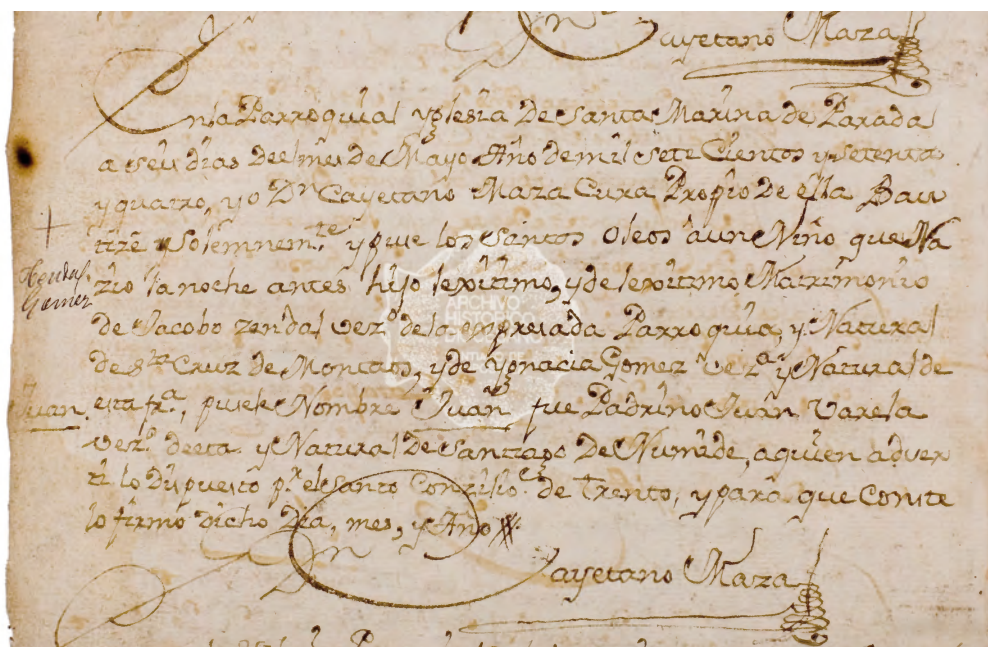 Dn Cayetano Maza
En la Parroquial yglesia De Santa Marina de Parada
a seis dias deel mes de Mayo Año de mil sete Cientos y setenta
y quatro, yo Dn Cayetano Maza Cura Proprio De ella Bau
tizé y solemnemte y puse los Santos Oleos à un Niño que Na
zio la noche antes hijo lexitimo, y de lexitimo Matrimonio
de Jacobo zendal vezº de la expresada Parroquia, y Natural
de Sta Cruz de Montaos, y de Ygnacia Gomez vezª y Natural de
esta frª, pusele Nombre Juan fue Padrino Juan Varela
vezº de esta y Natural De Santiago De Numide, a quien adver
ti lo Dispuesto pr el Santo Conzilio de Trento, y para que Conste
lo firmo Dicho Dia, mes, y Año
Dn Cayetano Maza
Zendal
Gomez
Juan
ARCHIVO
HISTORICO
DIOCESANO
SANTIAGO DE